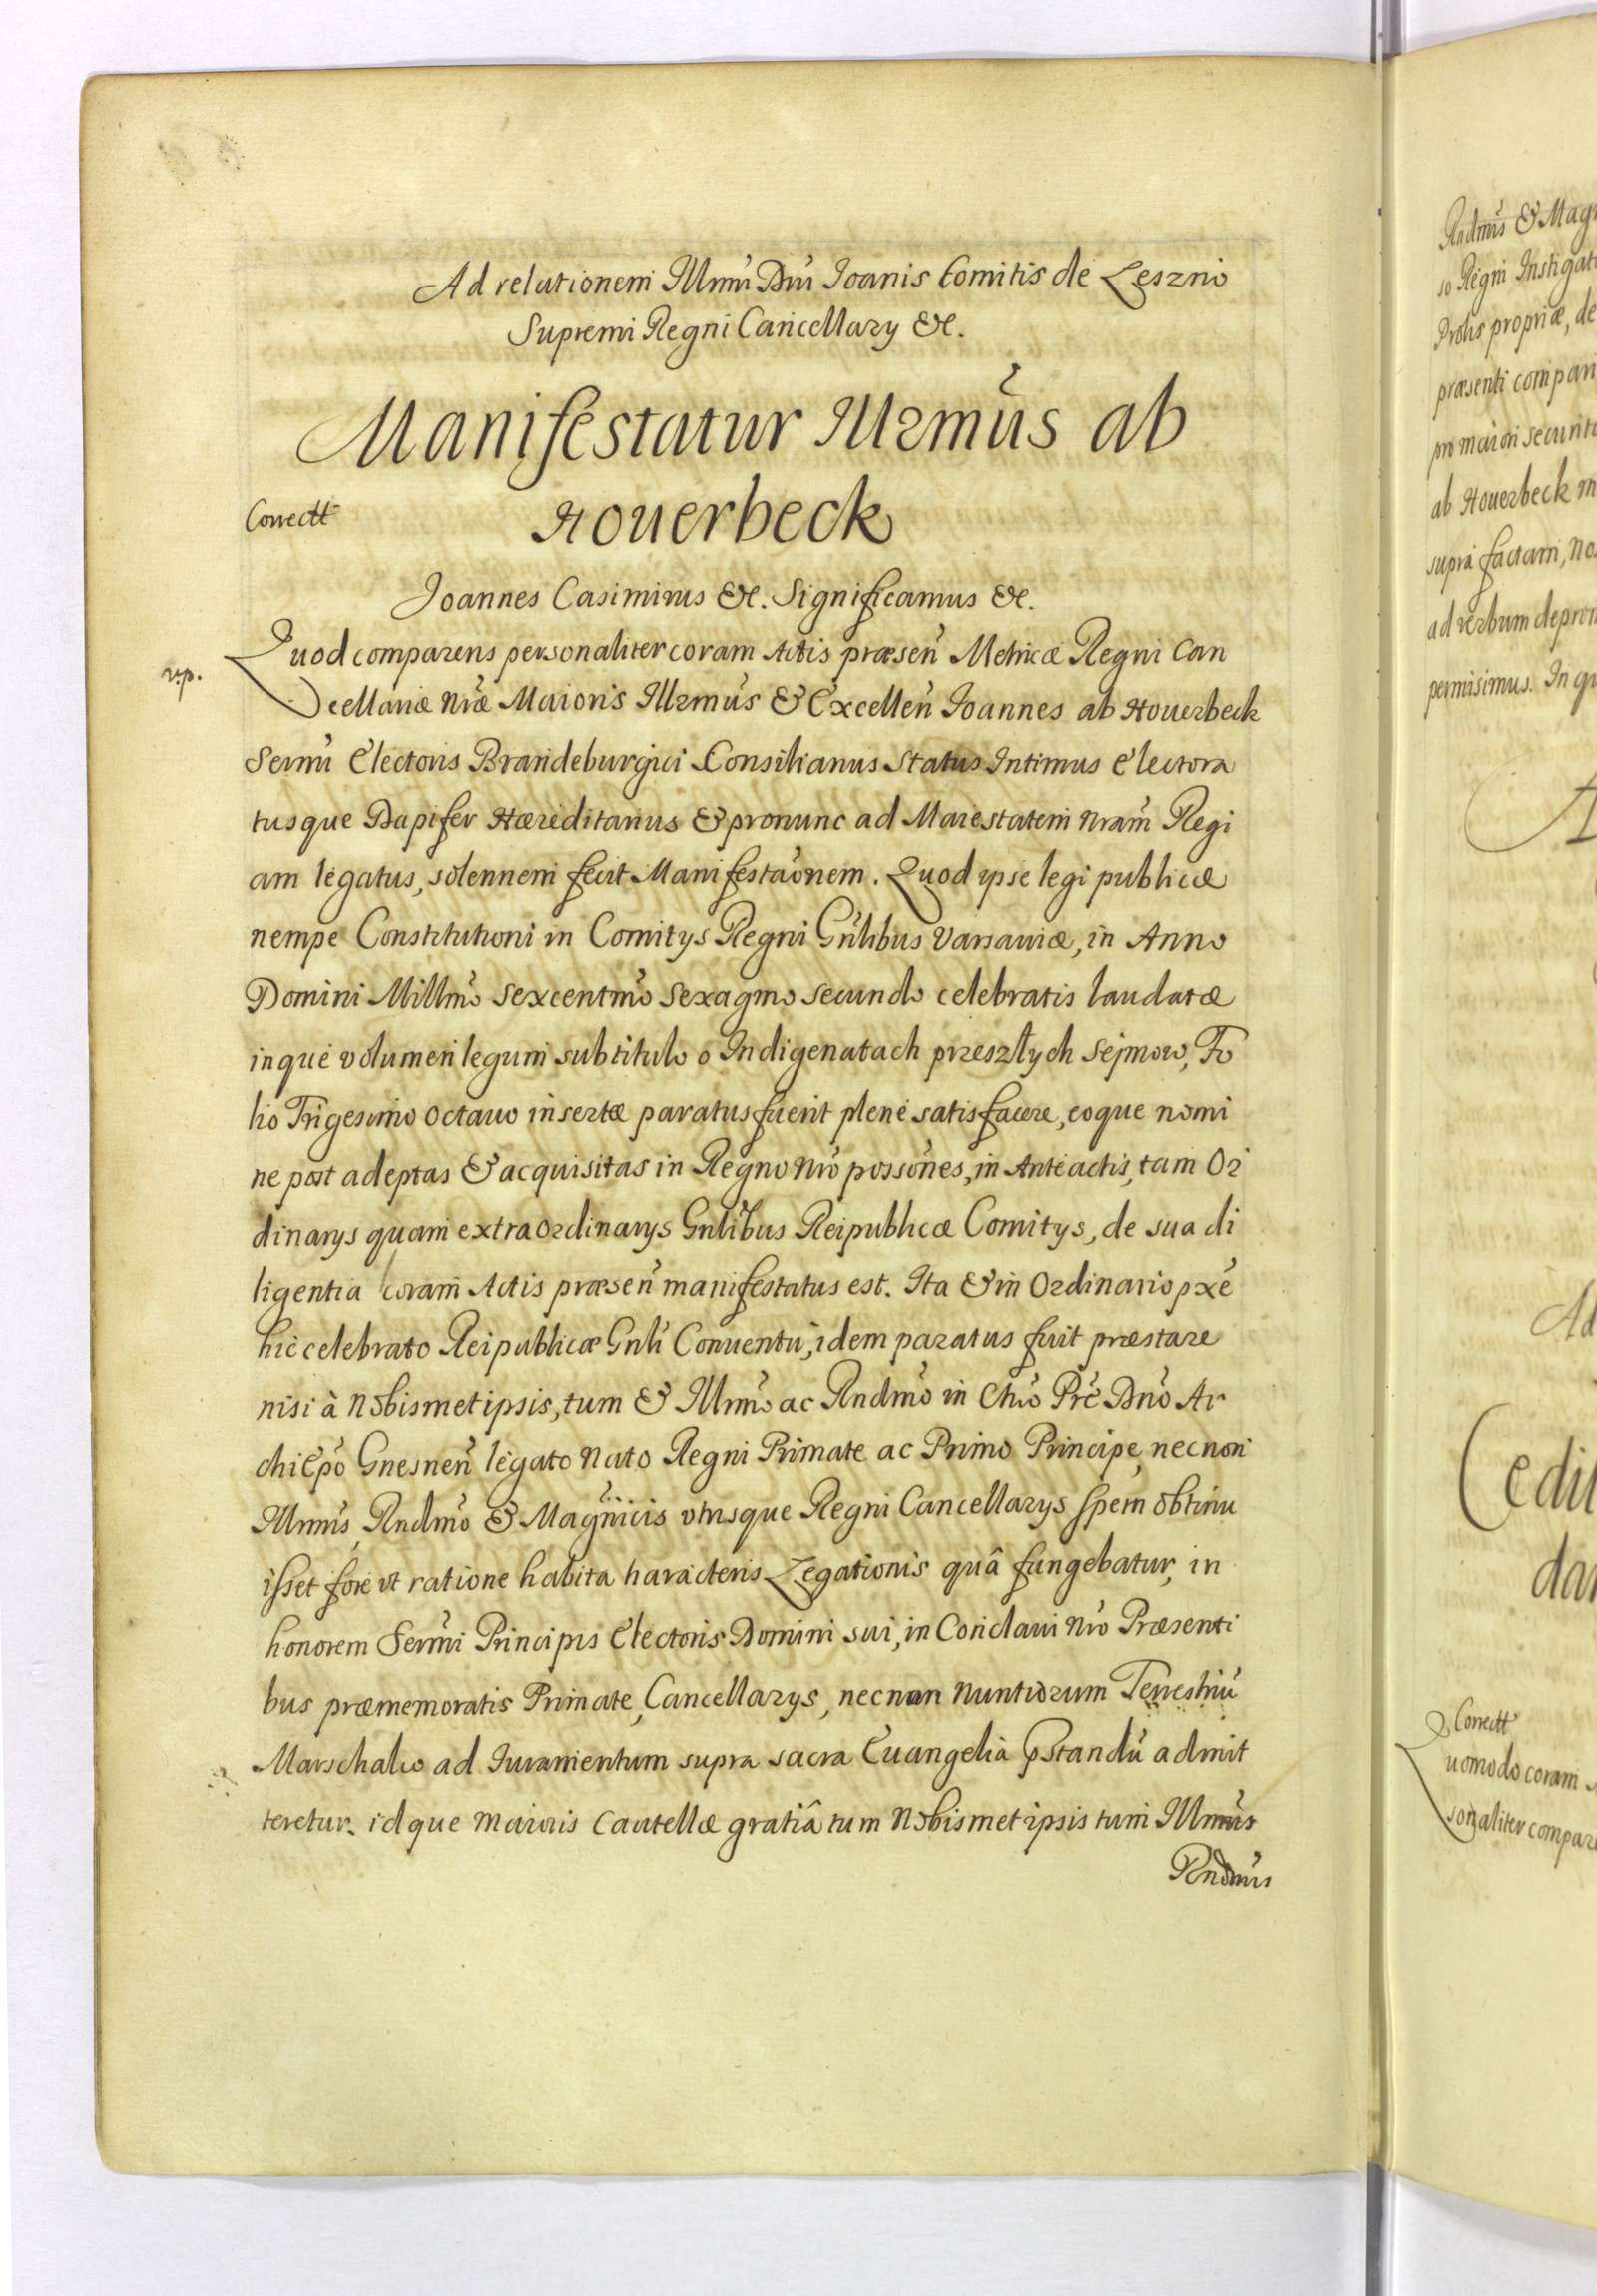 Ad relationem Illmi Dni Joanis Comitis de Leszno
Supremi Regni Cancellary &c.
Manifestatur Illrmus ab
Houerbeck
Correctt
Joannes Casimirus &c. Significamus &c.
vp.
Quod comparens personaliter coram Actis præsen̄ Metricæ Regni Can
cellariæ nr̄æ Maioris Illrmus & Excellen̄ Joannes ab Houerbeck
Sermi Electoris Brandeburgici Consiliarius Status Intimus Electora
tusque Dapifer Hæreditarius & pronunc ad Maiestatem nram̄ Regi
am legatus, solennem fecit Manifestaōnem. Quod ipse legi publicæ
nempe Constitutioni in Comitys Regni Gn̄libus Varsaviæ, in Anno
Domini Millmō Sexcentmō Sexagmo secundo celebratis laudatæ
inque volumen legum sub titulo o Indigenatach przeszłych Sejmow, Fo
lio Trigesimo octauo insertæ paratus fuerit plenè satisfacere, eoque nomi
ne post adeptas & acquisitas in Regno nrō possōnes, in Anteactis, tam Or
dinarys quam extraordinarys Gnlibus Reipublicæ Comitys, de sua di
ligentia coram Actis præsen̄ manifestatus est. Ita & in Ordinario pxē
hic celebrato Reipublicæ Gnli Conuentu, idem paratus fuit præstare
nisi à Nobismetipsis, tum & Illmo ac Rndmō in Chrō Prē Dnō Ar
chiEpō Gnesnen̄ legato nato Regni Primate ac Primo Principe, necnon
Illmis, Rndmō & Magn̄icis vtrisque Regni Cancellarys spem obtinu
isset fore vt ratione habita haracteris Legationis quâ fungebatur, in
honorem Sermi Principis Electoris Domini sui, in Conclaui nrō Præsenti
bus præmemoratis Primate, Cancellarys, necnon Nuntiorum Terrestriū
Marschalco ad Iuramentum supra sacra Euangelia pstandū admit
teretur. idque maioris cautellæ gratiâ tum Nobismetipsis tum Illmus
Rndmus
Rndmus & Mag
so Regni Instigat
Prolis propriæ, de
præsenti compari
pro maiori securit
ab Houerbeck m
supra factam, no
ad verbum deprom
permisimus. In qu
A
Ad
Cedit
dar
Correctt
Quomodo coram
sonaliter compar